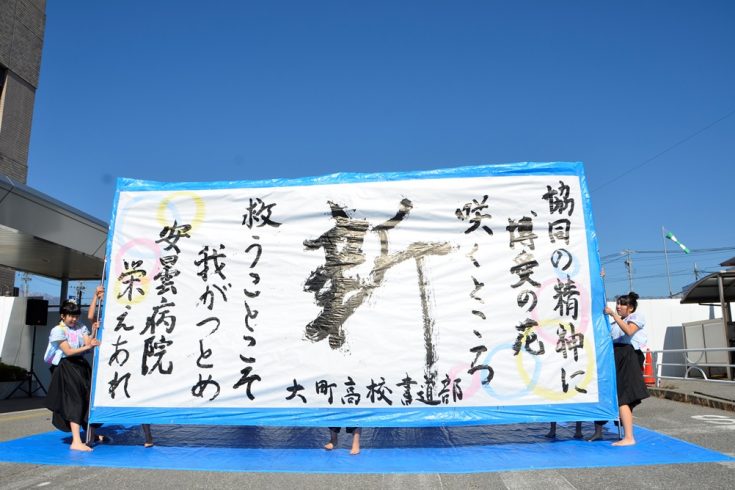 協同の精神に
博愛の花
咲くところ
新
救うことこそ
我がつとめ
安曇病院
栄えあれ
大町高校書道部